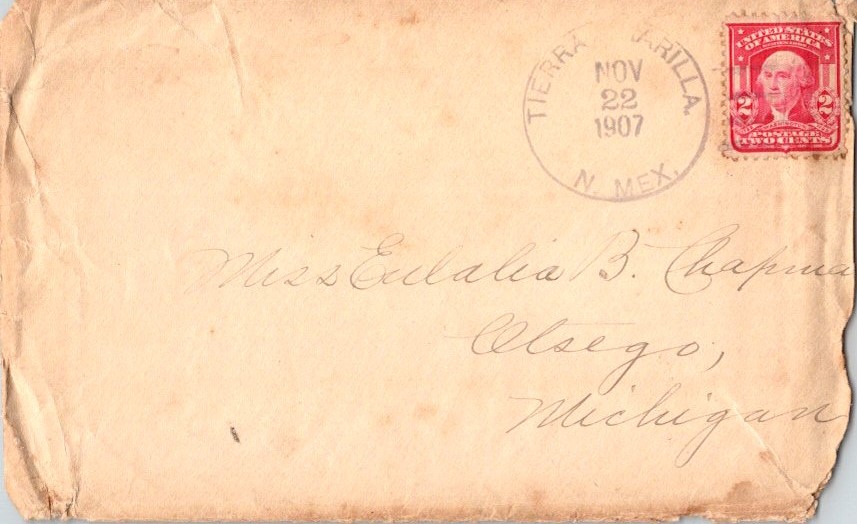 TIERRA ARILLA.
NOV
22
1907
N. MEX.
UNITED STATES
OF AMERICA
2 WASHINGTON 2
POSTAGE
TWO CENTS
Miss Eulalia B. Chapma
Otsego,
Michigan